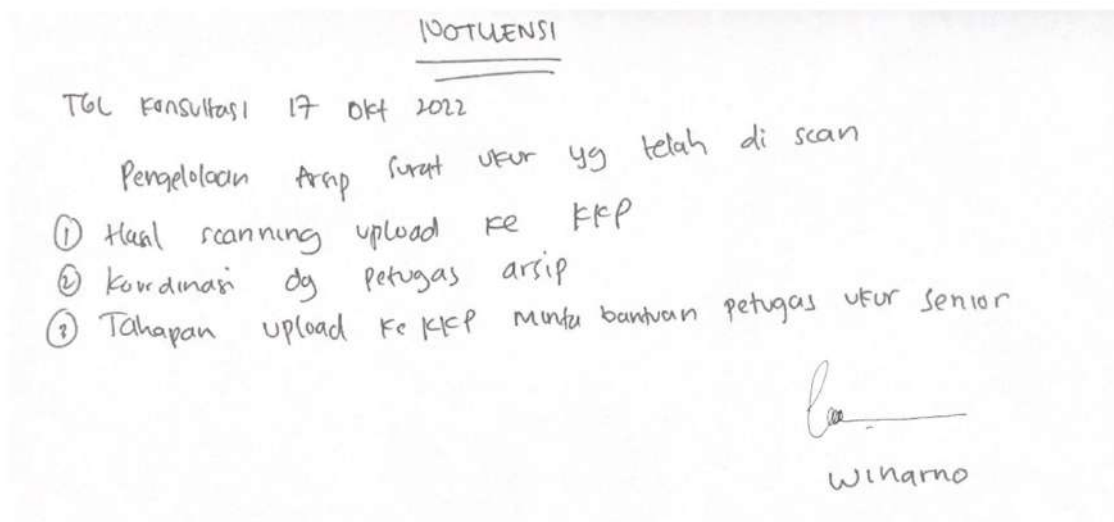 NOTULENSI
TGL Konsultasi 17 Okt 2022
Pengelolaan Arsip Surat Ukur yg telah di scan
① Hasil scanning upload ke KKP
② Koordinasi dg petugas arsip
③ Tahapan upload ke KKP minta bantuan petugas ukur senior
Winarno